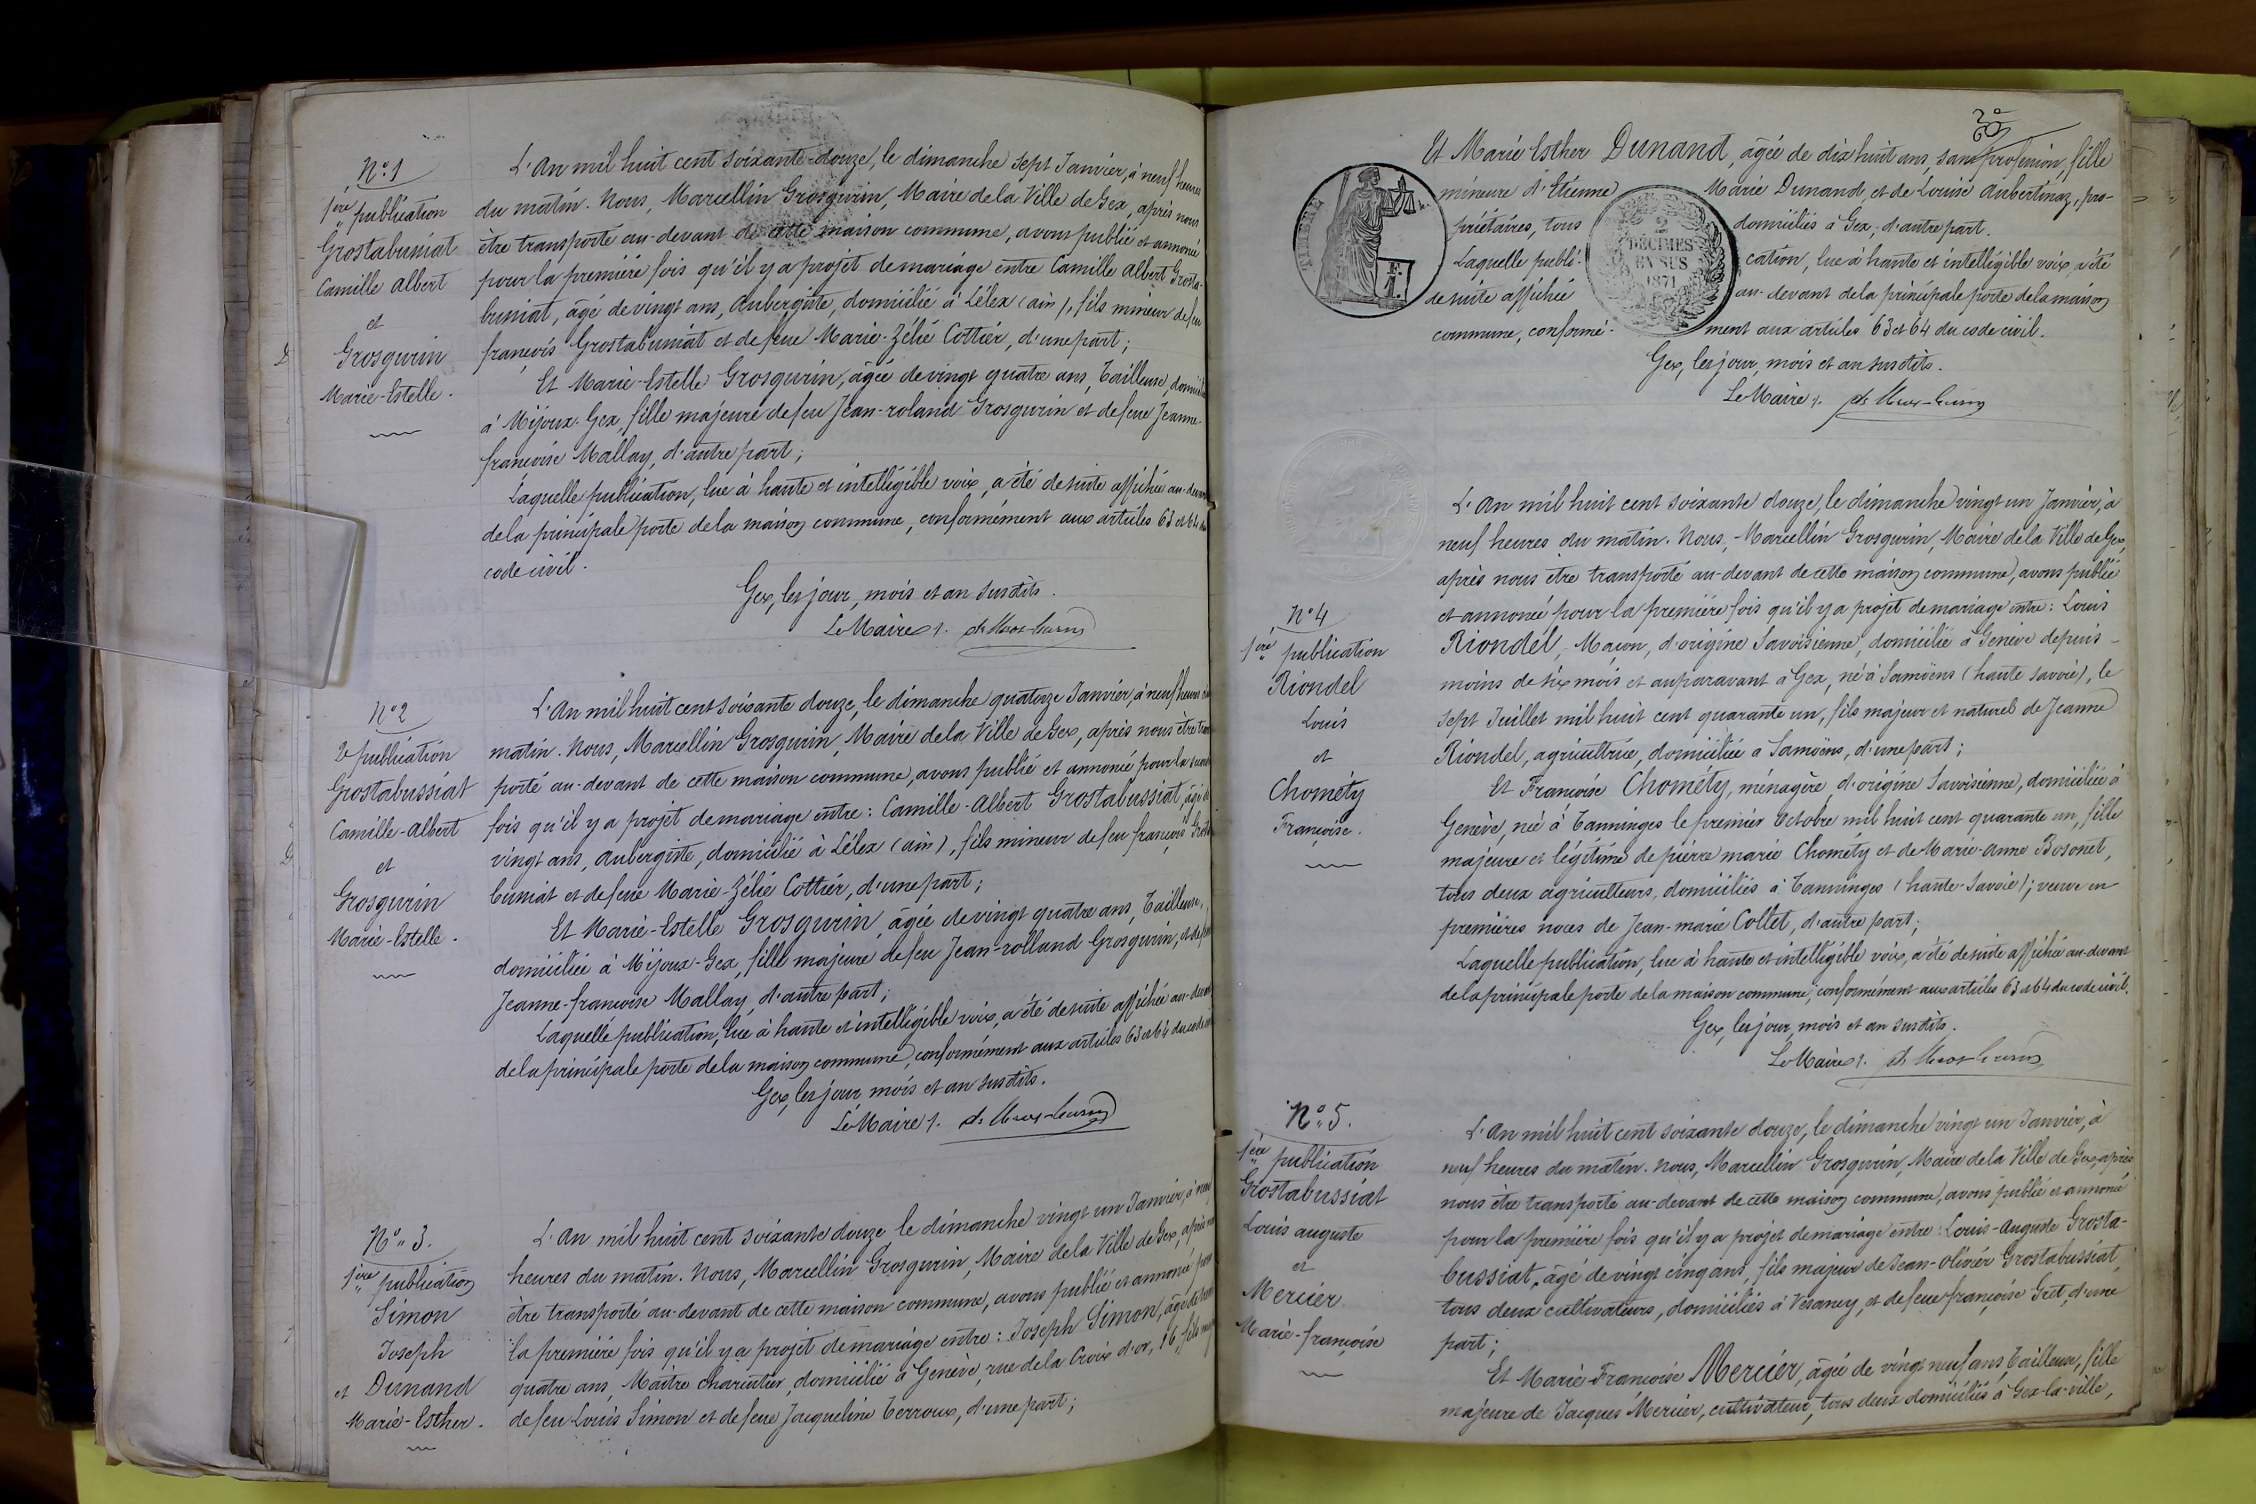 N.° 1
1ère publication
Grostabussiat
Camille Albert
et
Grosgurin
Marie-Estelle.
L'An mil huit cent soixante-douze, le dimanche sept Janvier, à neuf heures
du matin. Nous, Marcellin Grosgurin, Maire de la Ville de Gex, après nous
être transporté au-devant de cette maison commune, avons publié et annoncé
pour la première fois qu'il y a projet de mariage entre Camille Albert Grosta-
bussiat, âgé de vingt ans, Aubergiste, domicilié à Lélex (ain), fils mineur de feu
françois Grostabussiat et de feue Marie-Zélie Cottier, d'une part;
Et Marie-Estelle Grosgurin, âgée de vingt quatre ans, Tailleuse, domiciliée
à Mijoux-Gex, fille majeure de feu Jean-roland Grosgurin et de feue Jeanne-
françoise Mallay, d'autre part;
Laquelle publication, lue à haute et intelligible voix, a été de suite affichée au-devant
de la principale porte de la maison commune, conformément aux articles 63 et 64 du
code civil.
Gex, les jour, mois et an susdits.
Le Maire,
N° 2
2e publication
Grostabussiat
Camille-Albert
et
Grosgurin
Marie-Estelle.
L'An mil huit cent soixante douze, le dimanche quatorze Janvier, à neuf heures du
matin. Nous, Marcellin Grosgurin, Maire de la Ville de Gex, après nous être trans
porté au-devant de cette maison commune, avons publié et annoncé pour la seconde
fois qu'il y a projet de mariage entre: Camille-Albert Grostabussiat, âgé de
vingt ans, aubergiste, domicilié à Lélex (ain), fils mineur de feu françois Grosta
bussiat et de feue Marie-Zélie Cottier, d'une part;
Et Marie-Estelle Grosgurin, âgée de vingt quatre ans, Tailleuse,
domiciliée à Mijoux-Gex, fille majeure de feu Jean-rolland Grosgurin, et de feue
Jeanne-françoise Mallay, d'autre part;
Laquelle publication, lue à haute et intelligible voix, a été de suite affichée au-devant
de la principale porte de la maison commune, conformément aux articles 63 et 64 du code civil
Gex, les jour, mois et an susdits.
Le Maire,
N.° 3.
1ère publication
Simon
Joseph
et Dunand
Marie-Esther.
L'An mil huit cent soixante douze le dimanche vingt un Janvier, à neuf
heures du matin. Nous, Marcellin Grosgurin, Maire de la Ville de Gex, après nous
être transporté au-devant de cette maison commune, avons publié et annoncé pour
la première fois qu'il y a projet de mariage entre: Joseph Simon, âgé de trente
quatre ans, Maître charentier, domicilié à Genève, rue de la Croix d'or, 16, fils majeur
de feu Louis Simon et de feue Jacqueline Terroux, d'une part;
Et Marie Esther Dunand, âgée de dix huit ans, sans profession, fille
mineure d'Etienne Marie Dunand, et de Louise Aubertinaz, pro-
priétaires, tous domiciliés à Gex, d'autre part.
Laquelle publi- cation, lue à haute et intelligible voix, a été
de suite affichée au-devant de la principale porte de la maison
commune, conformé- ment aux articles 63 et 64 du code civil.
Gex, les jour, mois et an susdits.
Le Maire,
TIMBRE
2
DÉCIMES
EN SUS
1871
N° 4
1ère publication
Riondel
Louis
et
Chométy
Françoise.
L'An mil huit cent soixante douze, le dimanche vingt un Janvier, à
neuf heures du matin. Nous, Marcellin Grosgurin, Maire de la Ville de Gex,
après nous être transporté au-devant de cette maison commune, avons publié
et annoncé pour la première fois qu'il y a projet de mariage entre: Louis
Riondel, Maçon, d'origine Savoisienne, domicilié à Genève depuis
moins de six mois et auparavant à Gex, né à Samöens (haute savoie), le
sept Juillet mil huit cent quarante un, fils majeur et naturel de Jeanne
Riondel, agricultrice, domiciliée à Samöens, d'une part;
Et Françoise Chométy, ménagère, d'origine Savoisienne, domiciliée à
Genève, née à Tanninges le premier Octobre mil huit cent quarante un, fille
majeure et légitime de pierre marie Chométy et de Marie-Anne Bosonet,
tous deux agriculteurs, domiciliés à Tanninges (haute-Savoie); veuve en
premières noces de Jean-marie Collet, d'autre part;
Laquelle publication, lue à haute et intelligible voix, a été de suite affichée au-devant
de la principale porte de la maison commune, conformément aux articles 63 et 64 du code civil.
Gex, les jour, mois et an susdits.
Le Maire,
N.° 5.
1ère publication
Grostabussiat
Louis auguste
et
Mercier
Marie-françoise
L'An mil huit cent soixante douze, le dimanche vingt un Janvier, à
neuf heures du matin. Nous, Marcellin Grosgurin, Maire de la Ville de Gex, après
nous être transporté au-devant de cette maison commune, avons publié et annoncé
pour la première fois qu'il y a projet de mariage entre: Louis-Auguste Grosta-
bussiat, âgé de vingt cinq ans, fils majeur de Jean-Olivier Grostabussiat,
tous deux cultivateurs, domiciliés à Vesancy, et de feue françoise Gret, d'une
part;
Et Marie-Françoise Mercier, âgée de vingt neuf ans, Tailleuse, fille
majeure de Jacques Mercier, cultivateur, tous deux domiciliés à Gex-la-ville,